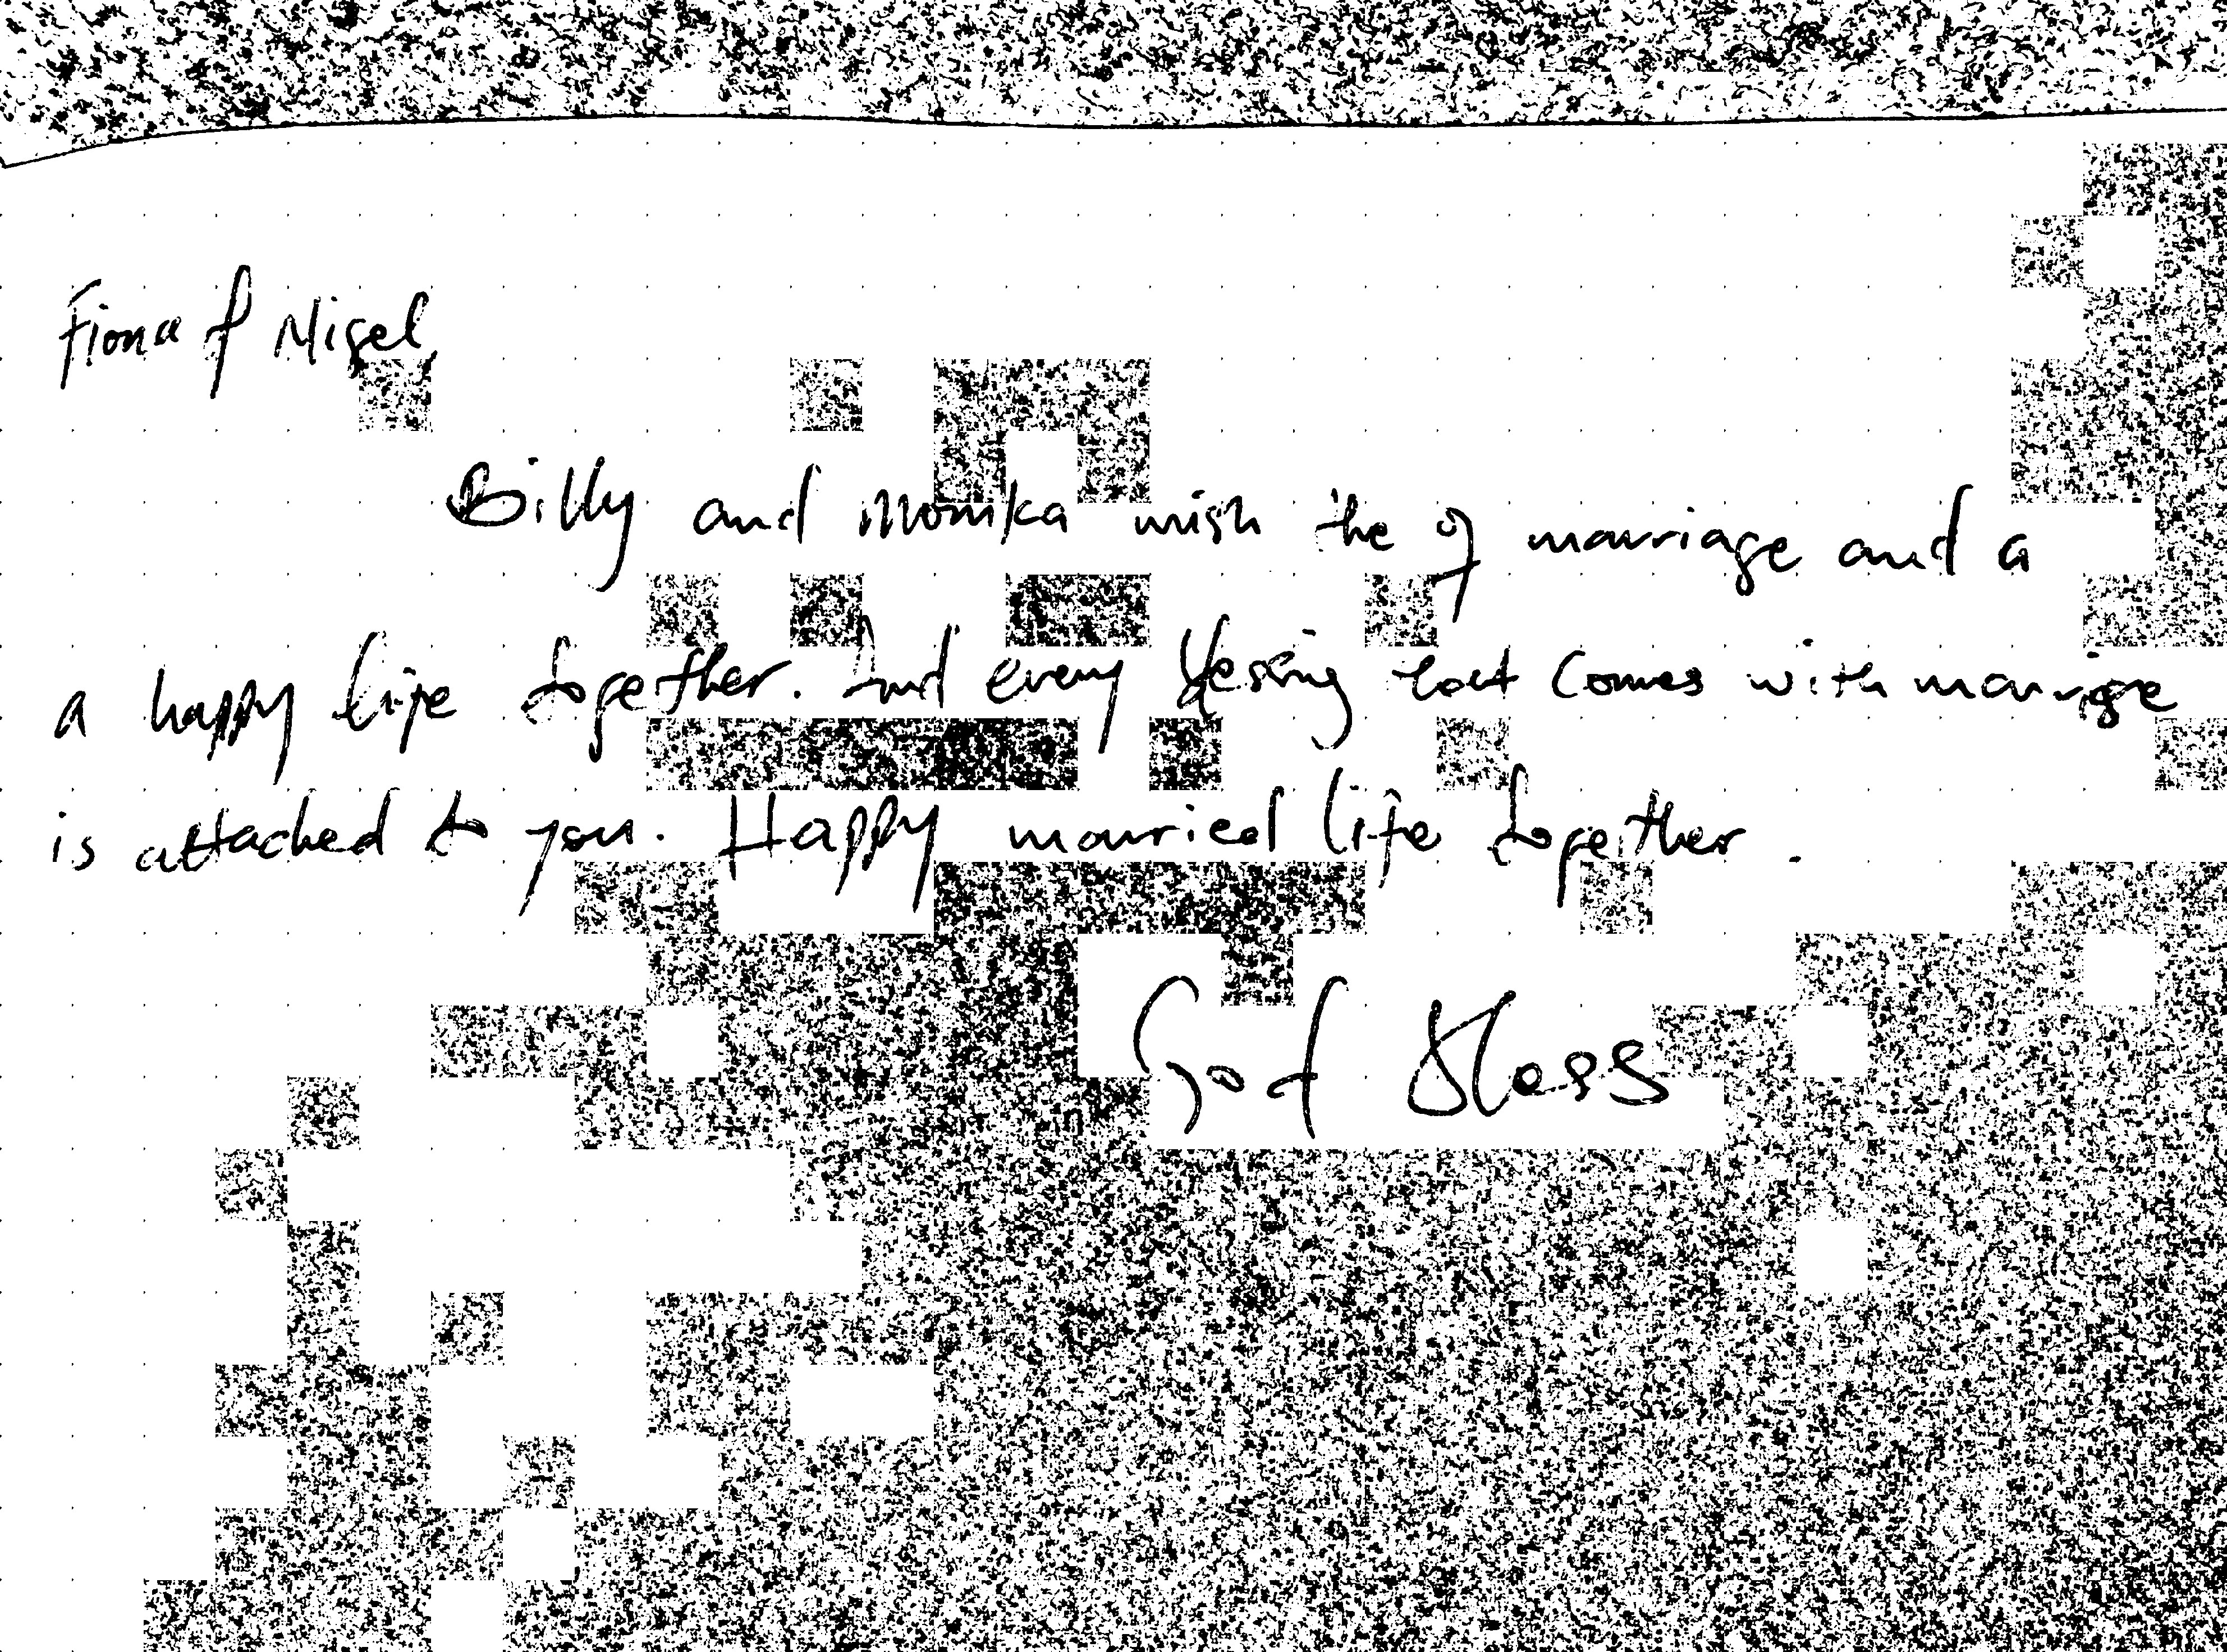 Fiona & Nigel,
Billy and Monika wish the of marriage and a
a happy life together. And every blessing that comes with marriage
is attached to you. Happy married life together.
God Bless